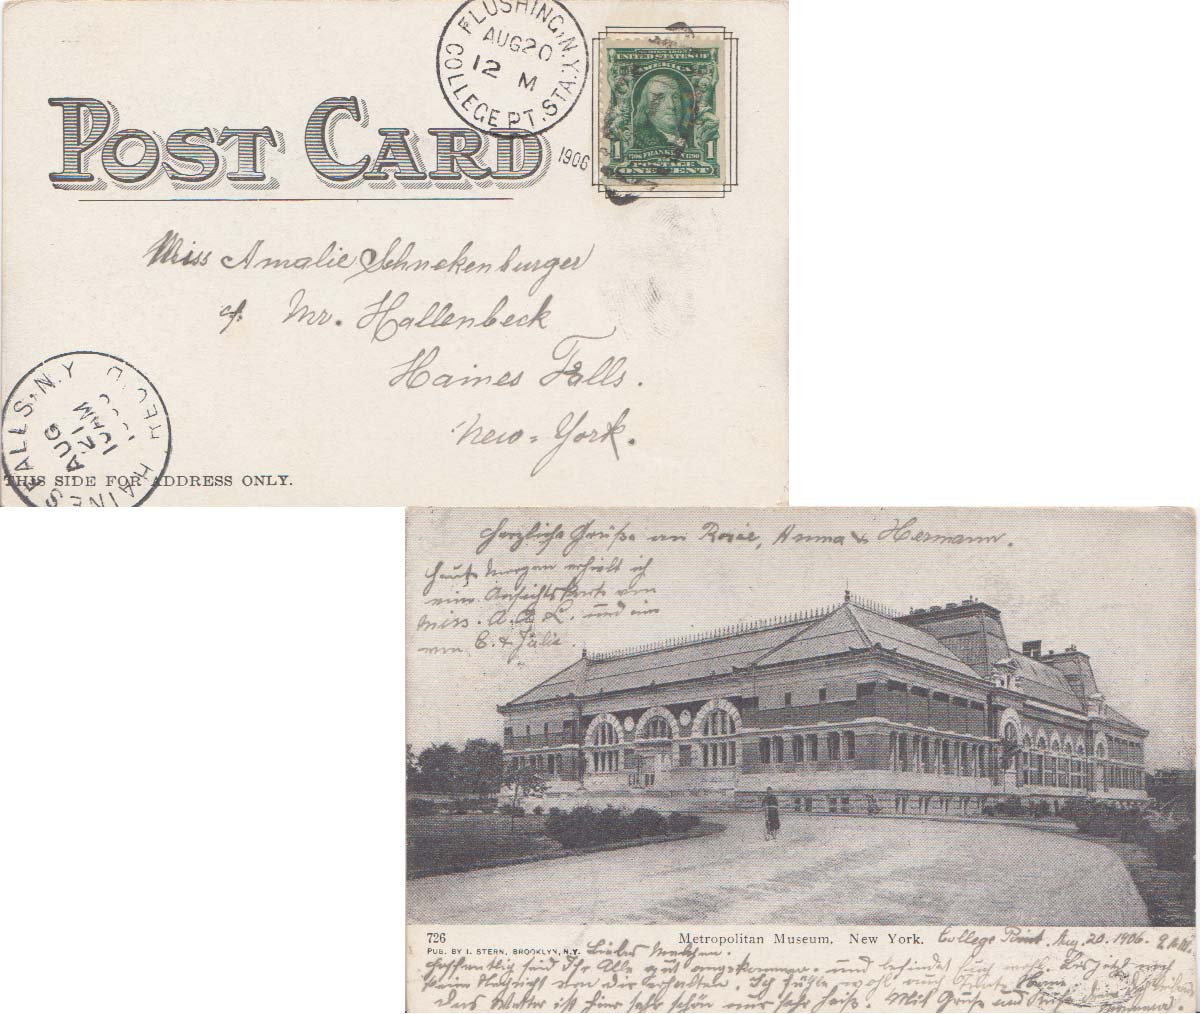 FLUSHING, N.Y.
COLLEGE PT. STA.
AUG 20
12 M
1906
UNITED STATES OF
AMERICA
1 1706 FRANKLIN 1790 1
POSTAGE
ONE CENT
POST CARD
Miss Amalie Schnekenburger
c/o Mr. Hallenbeck
Haines Falls.
New-York.
HAINES FALLS, N.Y. REC'D.
AUG
21
10 AM
THIS SIDE FOR ADDRESS ONLY.
Herzliche Grüße an Rosie, Anna & Hermann.
Heute Morgen erhielt ich
eine Ansichtskarte von
Miss. A. & L. und eine
von C. & Julie.
726
Metropolitan Museum, New York.
PUB. BY I. STERN, BROOKLYN, N.Y.
College Point, Aug. 20. 1906.
Liebes Malchen.
Hoffentlich seid Ihr Alle gut angekommen und befindet Euch wohl. Bis jetzt noch
keine Nachricht von Dir erhalten. Ich fühle wohl auch
Das Wetter ist hier sehr schön nur sehr heiß. Mit Gruß und Kuß Mamma.